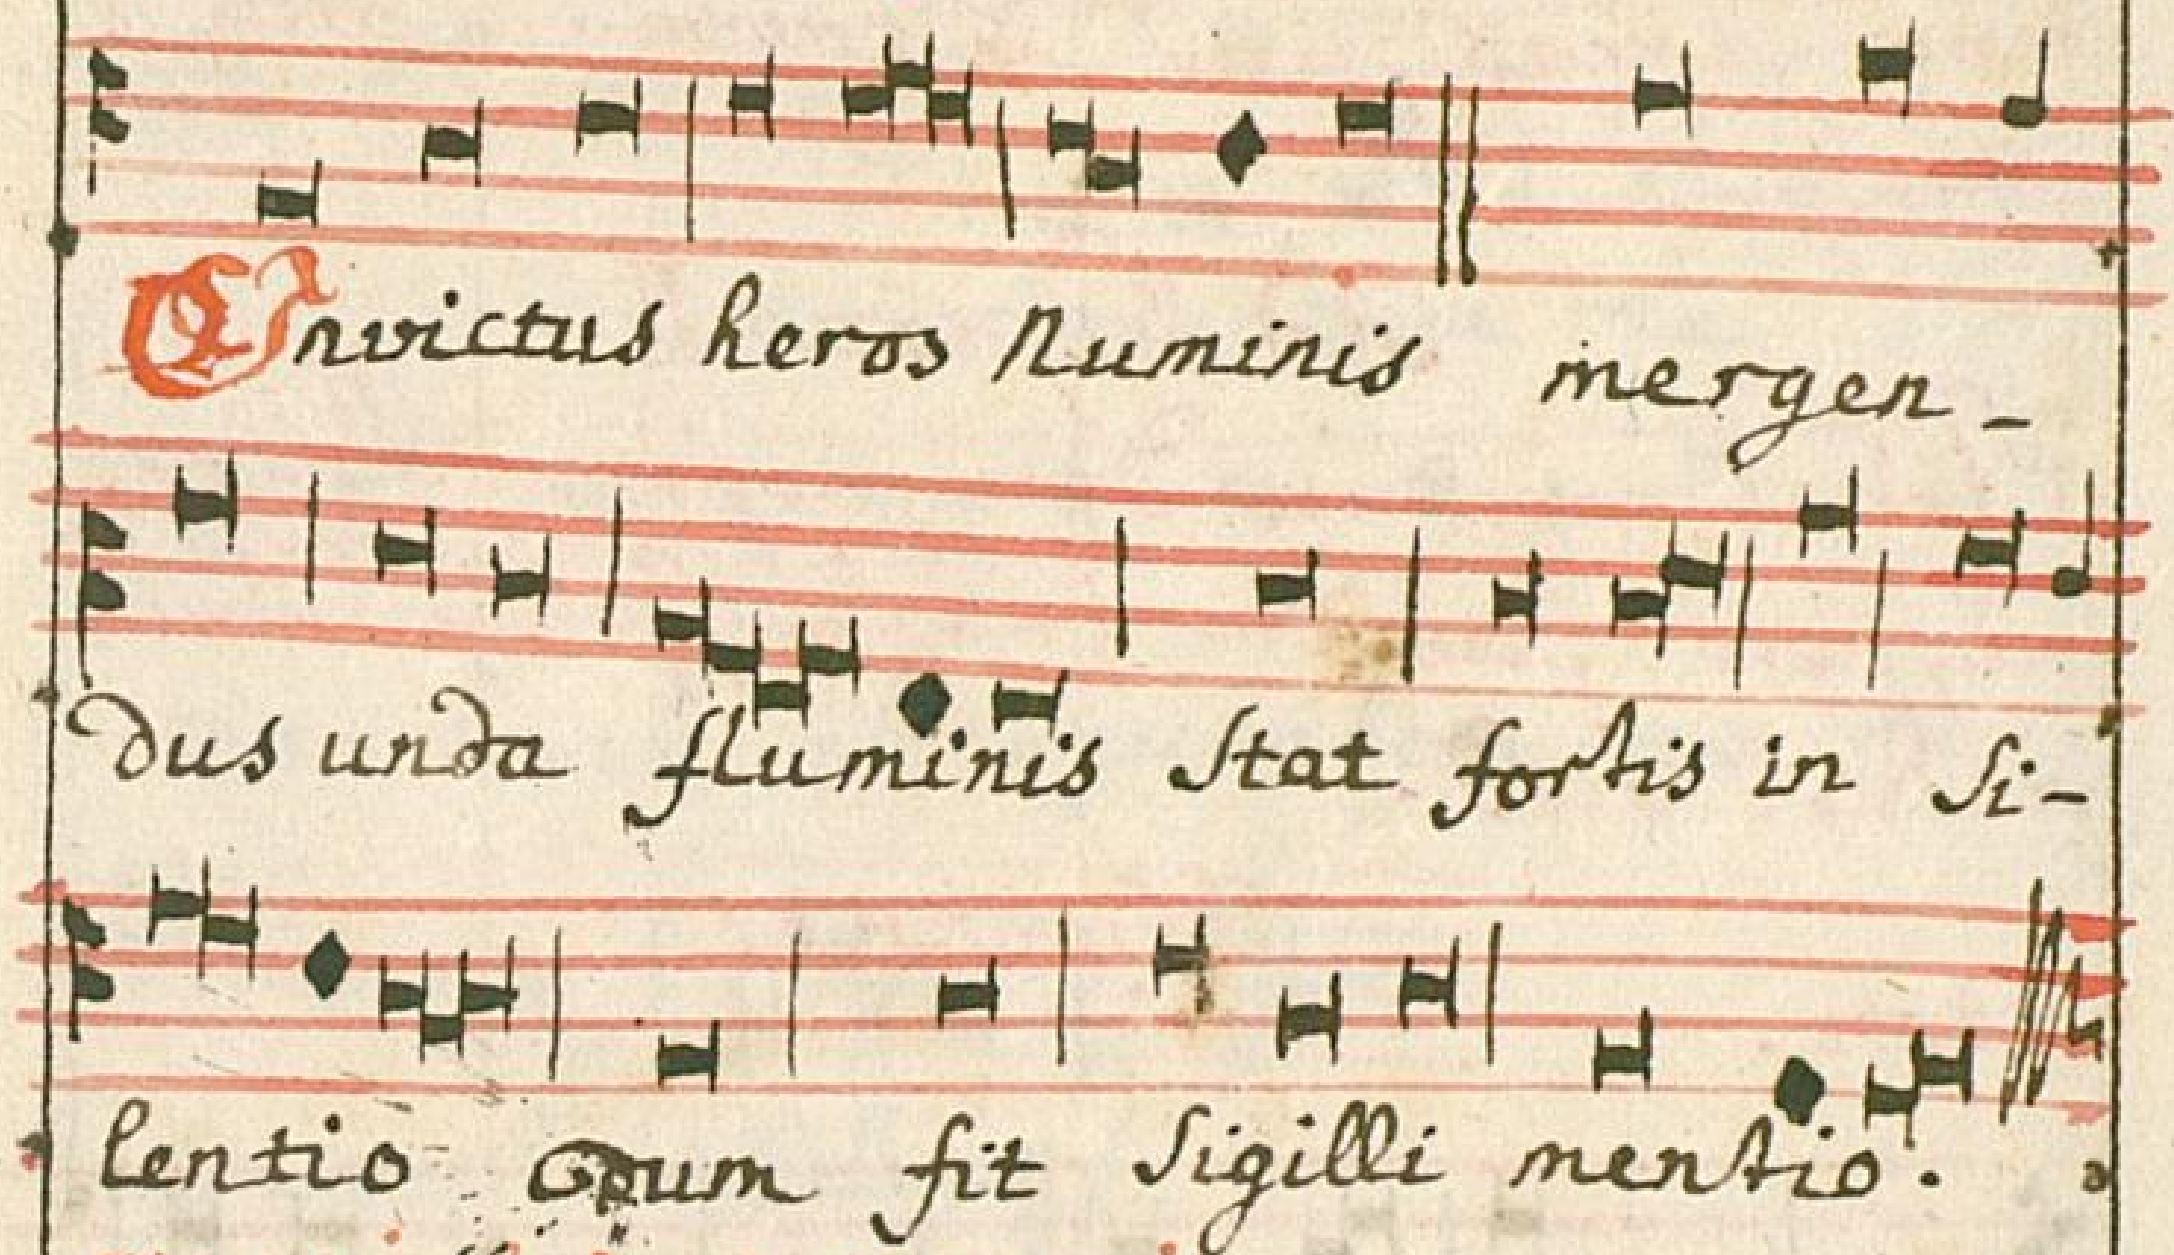 Invictus heros Numinis mergen-
dus unda fluminis stat fortis in si-
lentio cum fit sigilli mentio.